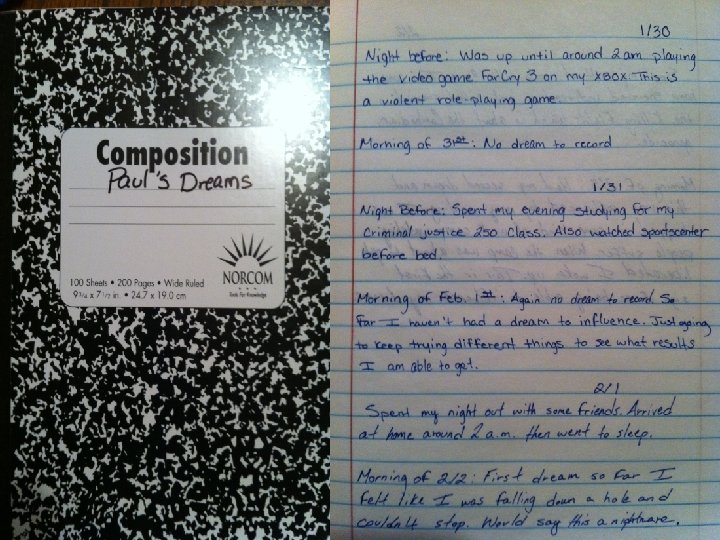 Composition
Paul's Dreams
100 Sheets • 200 Pages • Wide Ruled
9 3/4 x 7 1/2 in. • 24.7 x 19.0 cm
NORCOM
Tools For Knowledge
1/30
Night before: Was up until around 2am playing
the video game FarCry 3 on my XBOX. This is
a violent role-playing game.
Morning of 31st: No dream to record
1/31
Night Before: Spent my evening studying for my
Criminal justice 250 class. Also watched sportscenter
before bed.
Morning of Feb. 1st: Again no dream to record. So
far I haven't had a dream to influence. Just going
to keep trying different things to see what results
I am able to get.
2/1
Spent my night out with some friends. Arrived
at home around 2 a.m. then went to sleep.
Morning of 2/2: First dream so far I
felt like I was falling down a hole and
couldn't stop. World say this a nightmare.